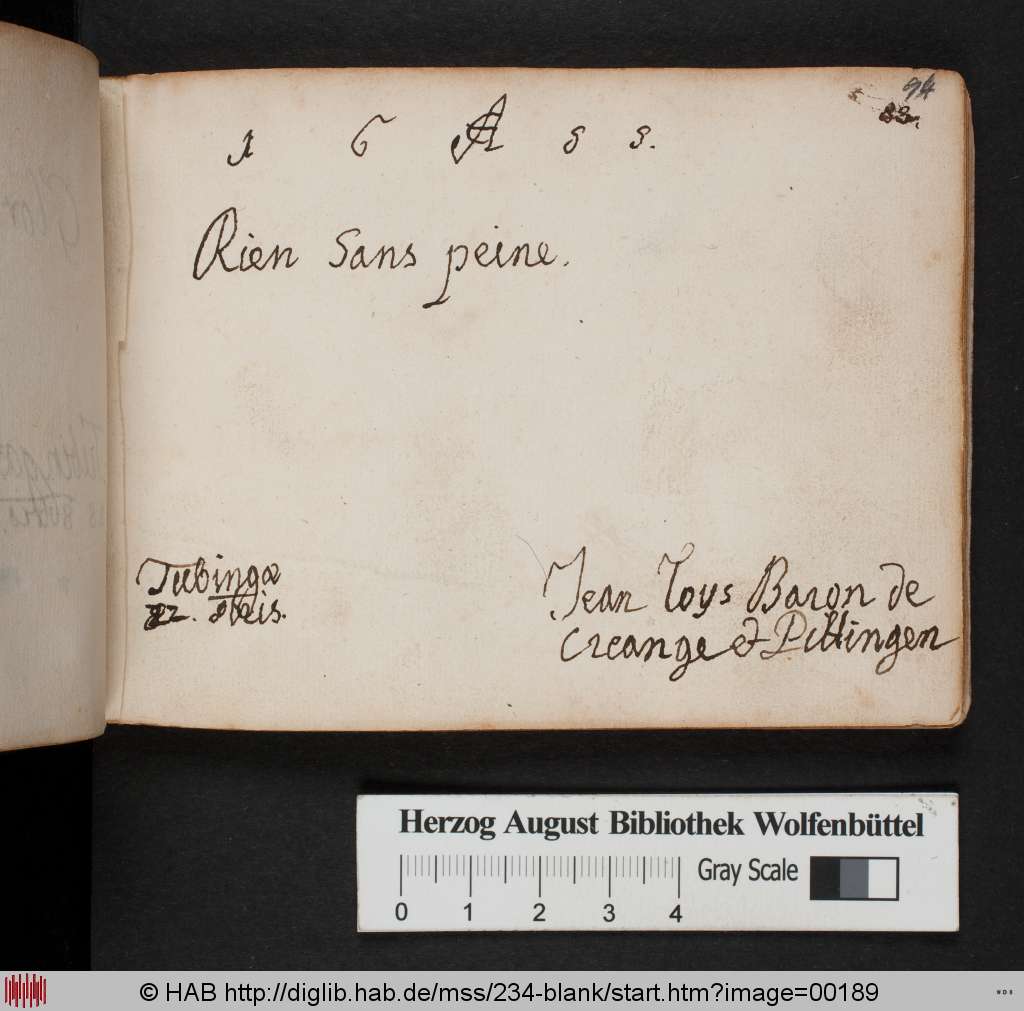 94
83.
1 6 A 5 5.
Rien Sans peine.
Tubingæ
22. 8beis.
Jean Loys Baron de
Creange & Pittingen
Herzog August Bibliothek Wolfenbüttel
Gray Scale
0 1 2 3 4
© HAB http://diglib.hab.de/mss/234-blank/start.htm?image=00189